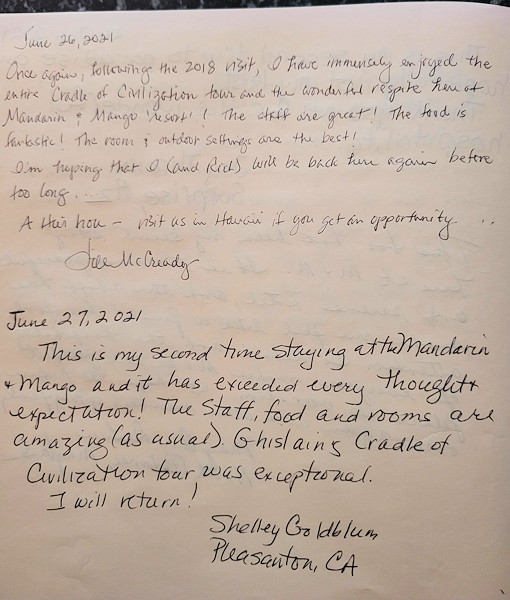 June 26, 2021
Once again, following the 2018 visit, I have immensely enjoyed the
entire Cradle of Civilization tour and the wonderful respite here at
Mandarin & Mango resort! The staff are great! The food is
fantastic! The room & outdoor settings are the best!
I'm hoping that I (and Rid) will be back here again before
too long....
A Hui hou - visit us in Hawaii if you get an opportunity ..
McCready
June 27, 2021
This is my second time staying at the Mandarin
+ Mango and it has exceeded every thought +
expectation! The Staff, food and rooms are
amazing (as usual). Ghislains Cradle of
Civilization tour was exceptional.
I will return!
Shelley Goldblum
Pleasanton, CA